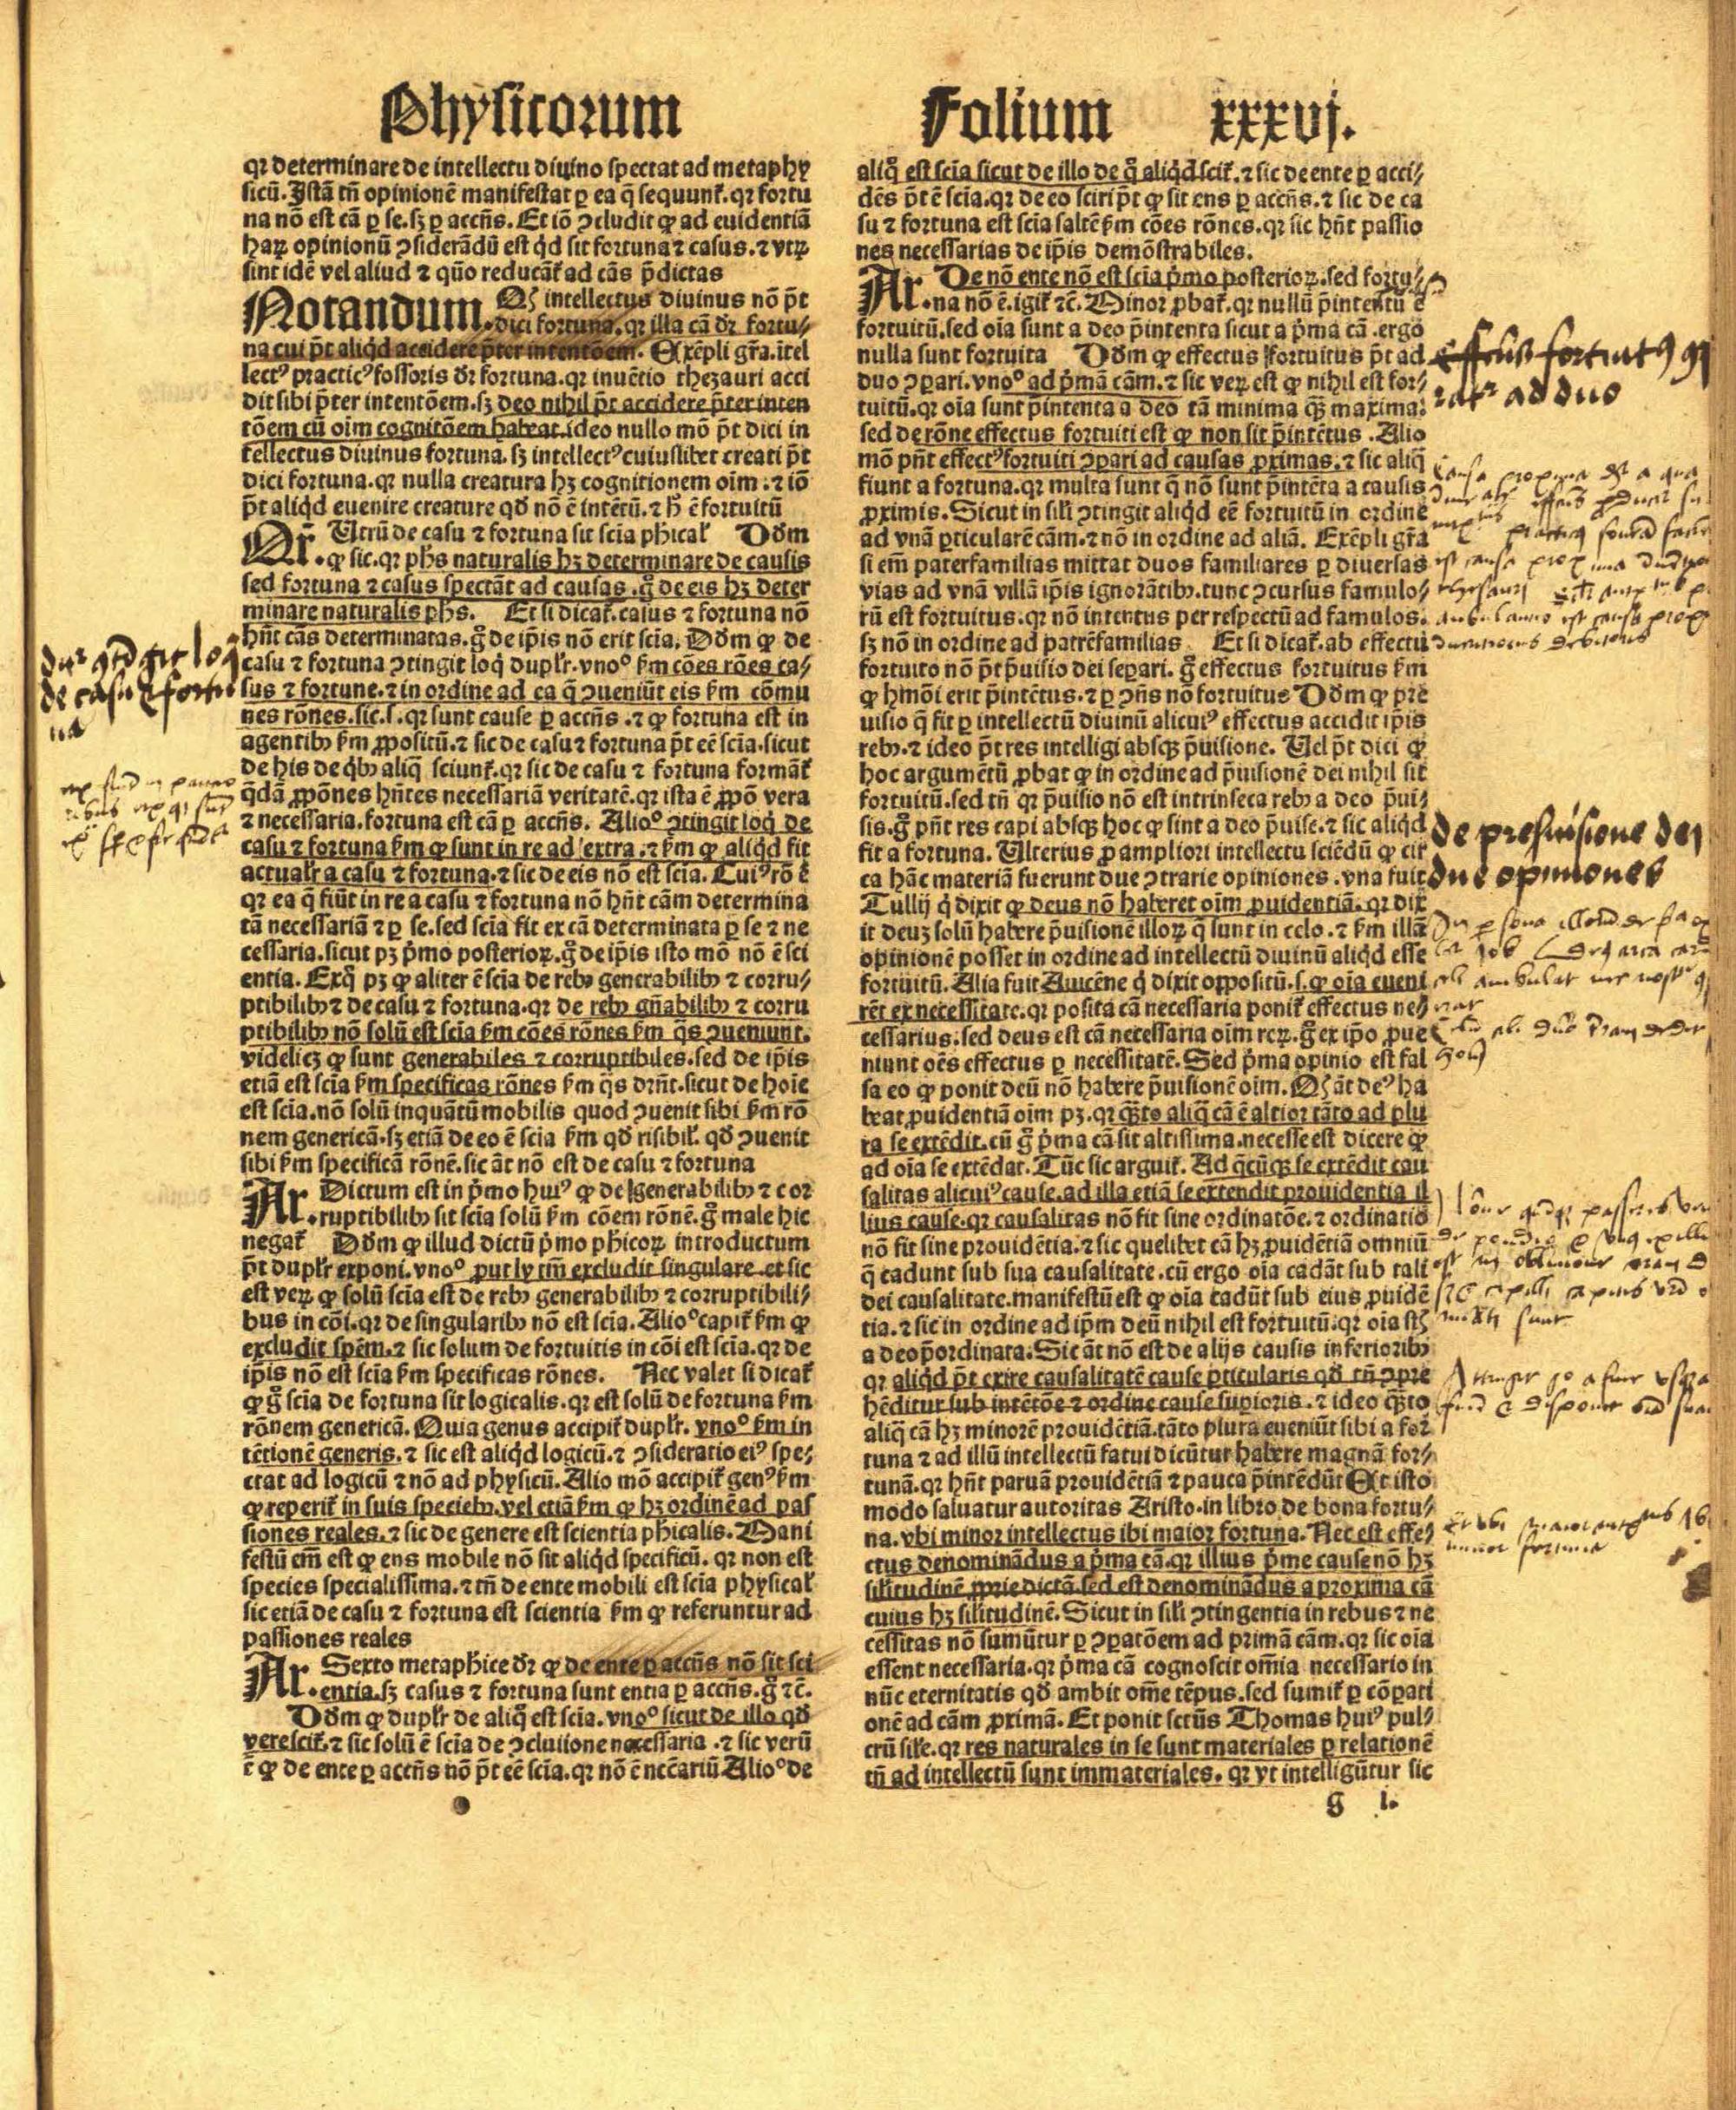 Physicorum
Folium xxxvj.
qꝛ determinare de intellectu diuino spectat ad metaphy
sicū. Istā tñ opinionē manifestat ꝑ ea q̄ sequunt᷑. qꝛ fortu
na nō est cā ꝑ se. sꝫ ꝑ accn̄s. Et iō ↄcludit ꝙ ad euidentiā
haꝝ opinionū ↄsiderādū est qd sit fortuna ⁊ casus. ⁊ vtꝝ
sint idē vel aliud ⁊ quō reducāt᷑ ad cās p̄dictas
Notandum. Qꝫ intellectus diuinus nō pt̄
dici fortuna. qꝛ illa cā dꝛ fortu⸗
na cui pt̄ aliqd accidere p̄ter intentōem. Exēpli gr̄a. ītel
lectꝰ practicꝰ fossoris dꝛ fortuna. qꝛ inuētio thezauri acci
dit sibi p̄ter intentōem. sꝫ deo nihil pt̄ accidere p̄ter inten
tōem cū oīm cognitōem habeat. ideo nullo mō pt̄ dici in
tellectus diuinus fortuna. sꝫ intellectꝰ cuiuslibet creati pt̄
dici fortuna. qꝛ nulla creatura hꝫ cognitionem oīm. ⁊ iō
pt̄ aliqd euenire creature qd̄ nō ē intētū. ⁊ h̄ ē fortuitū
Qr̄. Vtrū de casu ⁊ fortuna sit scīa phical᷑ Dōm
ꝙ sic. qꝛ phs naturalis hꝫ determinare de causis
sed fortuna ⁊ casus spectāt ad causas. g̊ de eis hꝫ deter
minare naturalis phs. Et si dicat᷑. casus ⁊ fortuna nō
hn̄t cās determinatas. g̊ de ip̄is nō erit scīa. Dōm ꝙ de
casu ⁊ fortuna ↄtingit loq̄ duplr̄. vnoº ẜm cōes rōes ca⸗
sus ⁊ fortune. ⁊ in ordine ad ea q̄ ↄueniūt eis ẜm cōmu
nes rōnes. sic. s. qꝛ sunt cause ꝑ accn̄s. ⁊ ꝙ fortuna est in
agentibꝰ ẜm ꝓpositū. ⁊ sic de casu ⁊ fortuna pt̄ eē scīa. sicut
de his de qbꝰ aliq̄ sciunt᷑. qꝛ sic de casu ⁊ fortuna formāt᷑
qdā ꝓpōnes hn̄tes necessariā veritatē. qꝛ ista ē ꝓpō vera
⁊ necessaria. fortuna est cā ꝑ accn̄s. Alioº ↄtingit loq̄ de
casu ⁊ fortuna ẜm ꝙ sunt in re ad extra. ⁊ ẜm ꝙ aliqd fit
actualr̄ a casu ⁊ fortuna. ⁊ sic de eis nō est scīa. Cuiꝰ rō ē
qꝛ ea q̄ fiūt in re a casu ⁊ fortuna nō hn̄t cām determina
tā necessariā ⁊ ꝑ se. sed scīa fit ex cā determinata ꝑ se ⁊ ne
cessaria. sicut pꝫ p̄mo posterioꝝ. g̊ de ip̄is isto mō nō ē sci
entia. Exq̄ pꝫ ꝙ aliter ē scīa de rebꝰ generabilibꝰ ⁊ corru⸗
ptibilibꝰ ⁊ de casu ⁊ fortuna. qꝛ de rebꝰ gn̄abilibꝰ ⁊ corru
ptibilibꝰ nō solū est scīa ẜm cōes rōnes ẜm q̄s ↄueniunt.
videlicꝫ ꝙ sunt generabiles ⁊ corruptibiles. sed de ip̄is
etiā est scīa ẜm specificas rōnes ẜm q̄s drn̄t. sicut de hoīe
est scīa. nō solū inquātū mobilis quod ↄuenit sibi ẜm rō
nem genericā. sꝫ etiā de eo ē scīa ẜm qd̄ risibil᷑. qd̄ ↄuenit
sibi ẜm specificā rōnē. sic āt nō est de casu ⁊ fortuna
Ar. Dictum est in p̄mo huiꝰ ꝙ de generabilibꝰ ⁊ cor
ruptibilibꝰ sit scīa solū ẜm cōem rōnē. g̊ male hic
negat᷑ Dōm ꝙ illud dictū p̄mo phicoꝝ introductum
pt̄ duplr̄ exponi. vnoº ꝓut ly tm̄ excludit singulare. et sic
est veꝝ ꝙ solū scīa est de rebꝰ generabilibꝰ ⁊ corruptibili⸗
bus in cōi. qꝛ de singularibꝰ nō est scīa. Alioº capit᷑ ẜm ꝙ
excludit spēm. ⁊ sic solum de fortuitis in cōi est scīa. qꝛ de
ip̄is nō est scīa ẜm specificas rōnes. Nec valet si dicat᷑
ꝙ g̊ scīa de fortuna sit logicalis. qꝛ est solū de fortuna ẜm
rōnem genericā. Quia genus accipit᷑ duplr̄. vnoº ẜm in
tētionē generis. ⁊ sic est aliqd logicū. ⁊ ↄsideratio eiꝰ spe⸗
ctat ad logicū ⁊ nō ad physicū. Alio mō accipit᷑ genꝰ ẜm
ꝙ reperit᷑ in suis speciebꝰ. vel etiā ẜm ꝙ hꝫ ordinē ad pas
siones reales. ⁊ sic de genere est scientia phicalis. Mani
festū em̄ est ꝙ ens mobile nō sit aliqd specificū. qꝛ non est
species specialissima. ⁊ tn̄ de ente mobili est scīa physical᷑
sic etiā de casu ⁊ fortuna est scientia ẜm ꝙ referuntur ad
passiones reales
Ar. Sexto metaphice dꝛ ꝙ de ente ꝑ accn̄s nō sit sci
entia. sꝫ casus ⁊ fortuna sunt entia ꝑ accn̄s. g̊ ⁊c̄.
Dōm ꝙ duplr̄ de aliq̊ est scīa. vnoº sicut de illo qd̄
vere scit᷑. ⁊ sic solū ē scīa de ↄclusione necessaria. ⁊ sic verū
ē ꝙ de ente ꝑ accn̄s nō pt̄ eē scīa. qꝛ nō ē nccāriū Alioº de
aliq̊ est scīa sicut de illo de q̊ aliqd scit᷑. ⁊ sic de ente ꝑ acci⸗
dēs pt̄ ē scīa. qꝛ de eo sciri pt̄ ꝙ sit ens ꝑ accn̄s. ⁊ sic de ca
su ⁊ fortuna est scīa saltē ẜm cōes rōnes. qꝛ sic hn̄t passio
nes necessarias de ip̄is demōstrabiles.
Ar. De nō ente nō est scīa p̄mo posterioꝝ. sed fortu⸗
na nō ē. igit᷑ ⁊c̄. Minor ꝓbat᷑. qꝛ nullū p̄intentū ē
fortuitū. sed oīa sunt a deo p̄intenta sicut a p̄ma cā. ergo
nulla sunt fortuita Dōm ꝙ effectus fortuitus pt̄ ad
duo ↄpari. vnoº ad p̄mā cām. ⁊ sic veꝝ est ꝙ nihil est for⸗
tuitū. qꝛ oīa sunt p̄intenta a deo tā minima qꝫ maxima:
sed de rōne effectus fortuiti est ꝙ non sit p̄intētus. Alio
mō pn̄t effectꝰ fortuiti ↄpari ad causas ꝓximas. ⁊ sic aliq̄
fiunt a fortuna. qꝛ multa sunt q̄ nō sunt p̄intēta a causis
ꝓximis. Sicut in sil̄i ↄtingit aliqd eē fortuitū in ordine
ad vnā ꝑticularē cām. ⁊ nō in ordine ad aliā. Exēpli gr̄a
si em̄ paterfamilias mittat duos familiares ꝑ diuersas
vias ad vnā villā ip̄is ignorātibꝰ. tunc ↄcursus famulo⸗
rū est fortuitus. qꝛ nō intentus per respectū ad famulos.
sꝫ nō in ordine ad patrēfamilias Et si dicat᷑. ab effectu
fortuito nō pt̄ p̄uisio dei separi. g̊ effectus fortuitus ẜm
ꝙ hmōi erit p̄intētus. ⁊ ꝑ ↄn̄s nō fortuitus Dōm ꝙ pre
uisio q̄ fit ꝑ intellectū diuinū alicuiꝰ effectus accidit ip̄is
rebꝰ. ⁊ ideo pt̄ res intelligi absqꝫ p̄uisione. Vel pt̄ dici ꝙ
hoc argumētū ꝓbat ꝙ in ordine ad p̄uisionē dei nihil sit
fortuitū. sed tn̄ qꝛ p̄uisio nō est intrinseca rebꝰ a deo p̄ui⸗
sis. g̊ pn̄t res capi absqꝫ hoc ꝙ sint a deo p̄uise. ⁊ sic aliqd
fit a fortuna. Ulterius ꝓ ampliori intellectu sciēdū ꝙ cir
ca hāc materiā fuerunt due ↄtrarie opiniones. vna fuit
Tullij q̄ dixit ꝙ deus nō haberet oīm ꝓuidentiā. qꝛ dix
it deuꝫ solū habere p̄uisionē illoꝝ q̄ sunt in celo. ⁊ ẜm illā
opinionē posset in ordine ad intellectū diuinū aliqd esse
fortuitū. Alia fuit Auicēne q̄ dixit oppositū. s. ꝙ oīa eueni
rēt ex necessitate. qꝛ posita cā necessaria ponit᷑ effectus ne⸗
cessarius: sed deus est cā necessaria oīm reꝝ. g̊ ex ip̄o ꝓue
niunt oēs effectus ꝑ necessitatē. Sed p̄ma opinio est fal
sa eo ꝙ ponit deū nō habere p̄uisionē oīm. Qꝫ āt deꝰ ha
beat ꝓuidentiā oīm pꝫ. qꝛ qꝫto aliq̄ cā ē altior tāto ad plu
ra se extēdit. cū g̊ p̄ma cā sit altissima. necesse est dicere ꝙ
ad oīa se extēdat. Tūc sic arguit᷑. Ad q̄cūqꝫ se extēdit cau
salitas alicuiꝰ cause. ad illa etiā se extendit prouidentia il
lius cause. qꝛ causalitas nō fit sine ordinatōe. ⁊ ordinatio
nō fit sine prouidētia. ⁊ sic quelibet cā hꝫ ꝓuidētiā omniū
q̄ cadunt sub sua causalitate. cū ergo oīa cadāt sub tali
dei causalitate. manifestū est ꝙ oīa cadūt sub eius ꝓuidē
tia. ⁊ sic in ordine ad ip̄m deū nihil est fortuitū: qꝛ oīa st̄
a deo p̄ordinata. Sic āt nō est de alijs causis inferioribꝰ
qꝛ aliqd pt̄ exire causalitatē cause ꝑticularis qd̄ tn̄ ↄpre
hēditur sub intētōe ⁊ ordine cause suꝑioris. ⁊ ideo qꝫto
aliq̄ cā hꝫ minorē prouidētiā. tāto plura eueniūt sibi a for
tuna ⁊ ad illū intellectū fatui dicūtur habere magnā for⸗
tunā. qꝛ hn̄t paruā prouidētiā ⁊ pauca p̄intēdūt Et isto
modo saluatur autoritas Aristo. in libro de bona fortu⸗
na. vbi minor intellectus ibi maior fortuna. Nec est effe⸗
ctus denominādus a p̄ma cā. qꝛ illius p̄me cause nō hꝫ
sil̄itudinē ꝓprie dictā. sed est denominādus a proxima cā
cuius hꝫ sil̄itudinē. Sicut in sil̄i ↄtingentia in rebus ⁊ ne
cessitas nō sumūtur ꝑ ↄparatōem ad primā cām. qꝛ sic oīa
essent necessaria. qꝛ p̄ma cā cognoscit om̄ia necessario in
nūc eternitatis qd̄ ambit om̄e tēpus. sed sumit᷑ ꝑ cōparati
onē ad cām ꝓximā. Et ponit sctūs Thomas huiꝰ pul⸗
crū sil̄e. qꝛ res naturales in se sunt materiales ꝑ relationē
tn̄ ad intellectū sunt immateriales. qꝛ vt intelligūtur sic
g i.
de casu & fortu
na
effectus fortuitꝰ ↄpa
rat᷑ ad duo
de presuisione dei
due opiniones